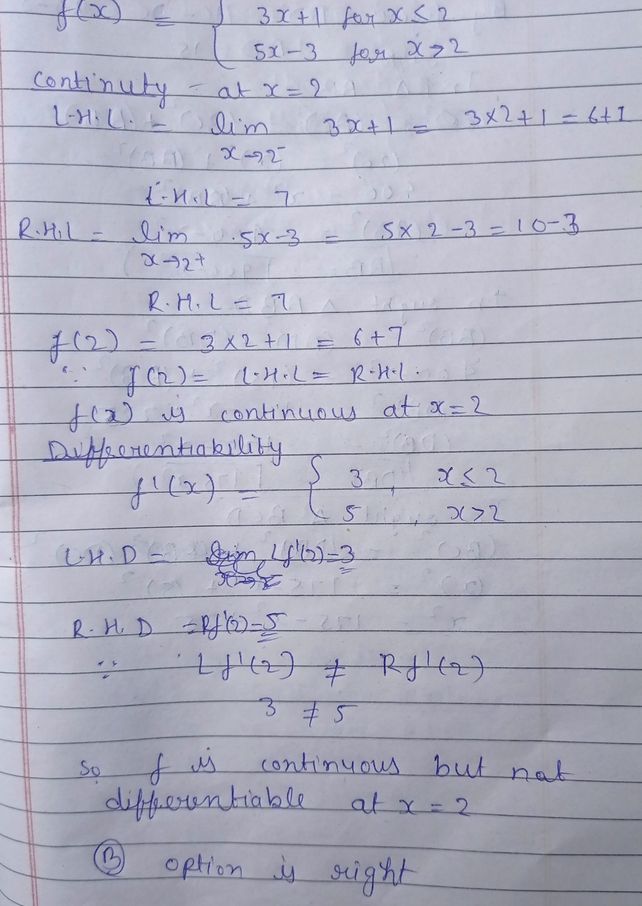 f(x) = { 3x+1 for x ≤ 2
5x-3 for x>2
Continuty - at x=2
L.H.L. = lim 3x+1 = 3×2+1 = 6+1
x→2-
L.H.L = 7
R.H.L = lim 5x-3 = 5×2-3 = 10-3
x→2+
R.H.L = 7
f(2) = 3×2+1 = 6+7
∵ f(2) = L.H.L = R.H.L.
f(x) is continuous at x=2
Differentiability
f'(x) = { 3, x≤2
5, x>2
L.H.D = Lf'(2)=3
R.H.D = Rf'(2)=5
∵ Lf'(2) ≠ Rf'(2)
3 ≠ 5
So f is continuous but not
differentiable at x = 2
(B) option is right